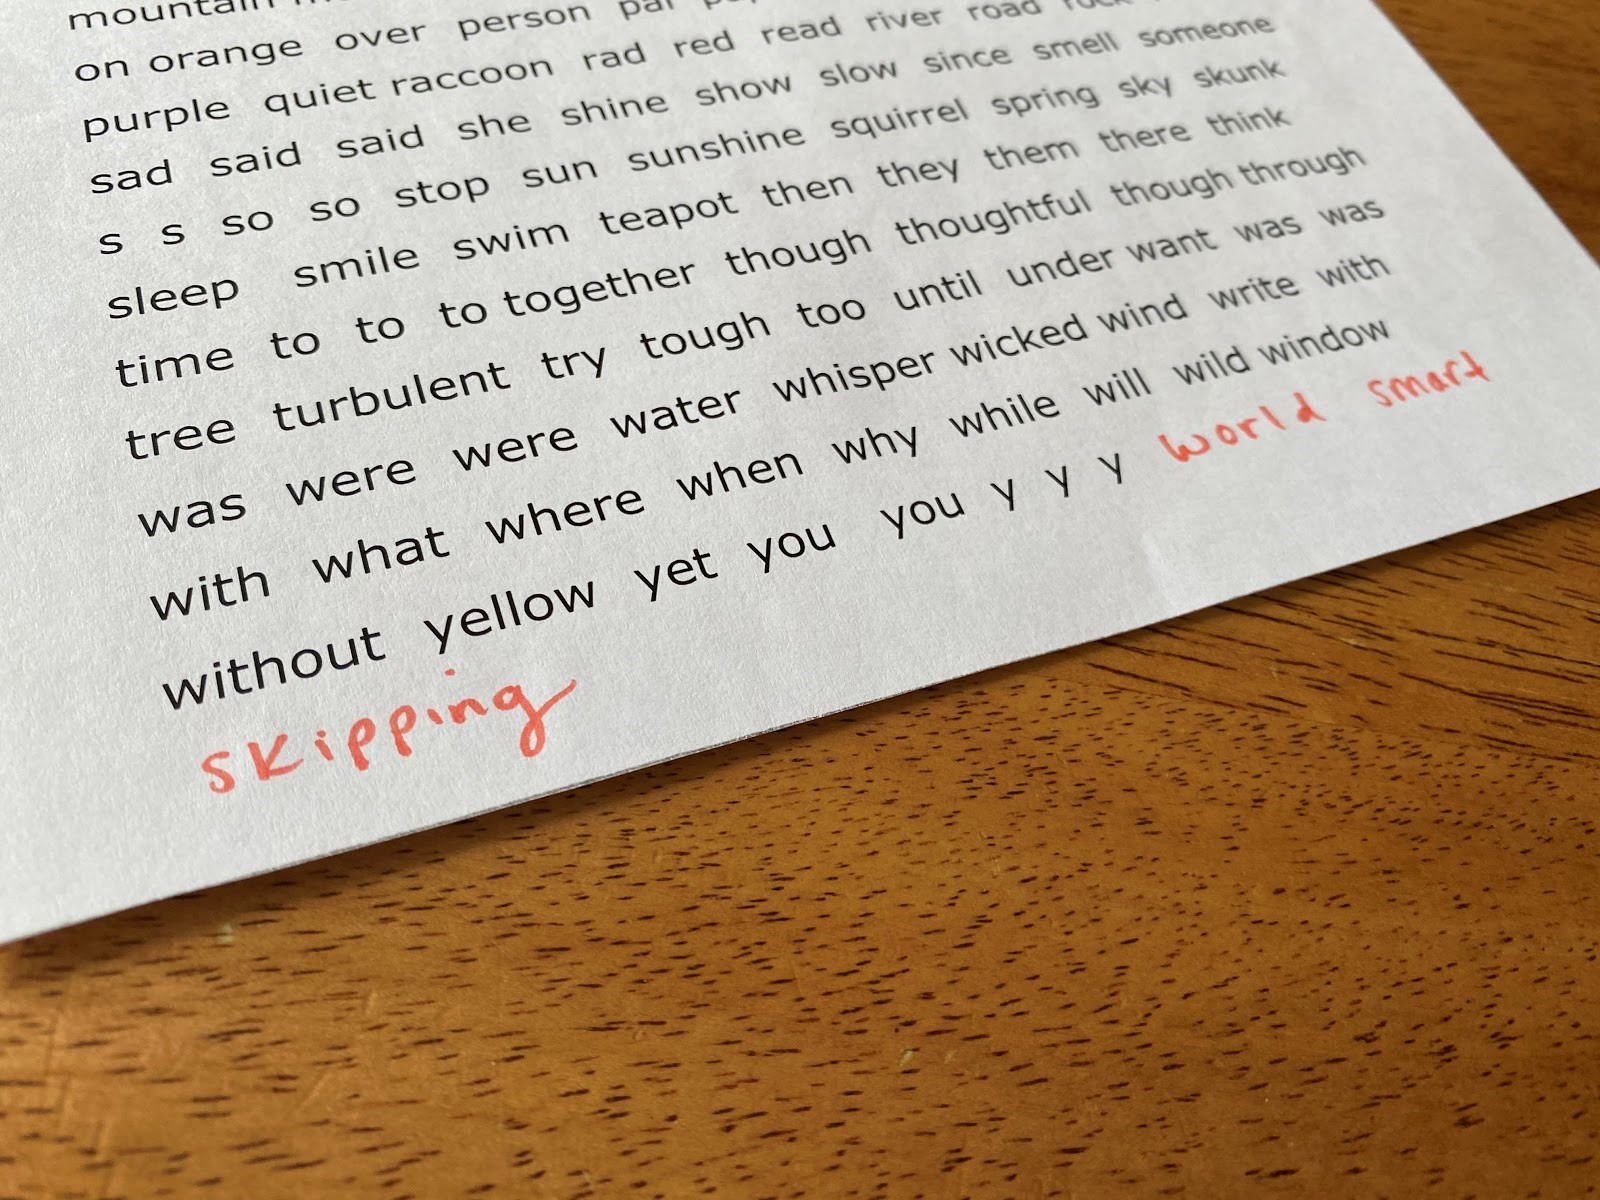 mountain
on orange over person
purple quiet raccoon rad red read river road
sad said said she shine show slow since smell someone
s s so so stop sun sunshine squirrel spring sky skunk
sleep smile swim teapot then they them there think
time to to to together though thoughtful though through
tree turbulent try tough too until under want was was
was were were water whisper wicked wind write with
with what where when why while will wild window
without yellow yet you you y y y world smart
skipping